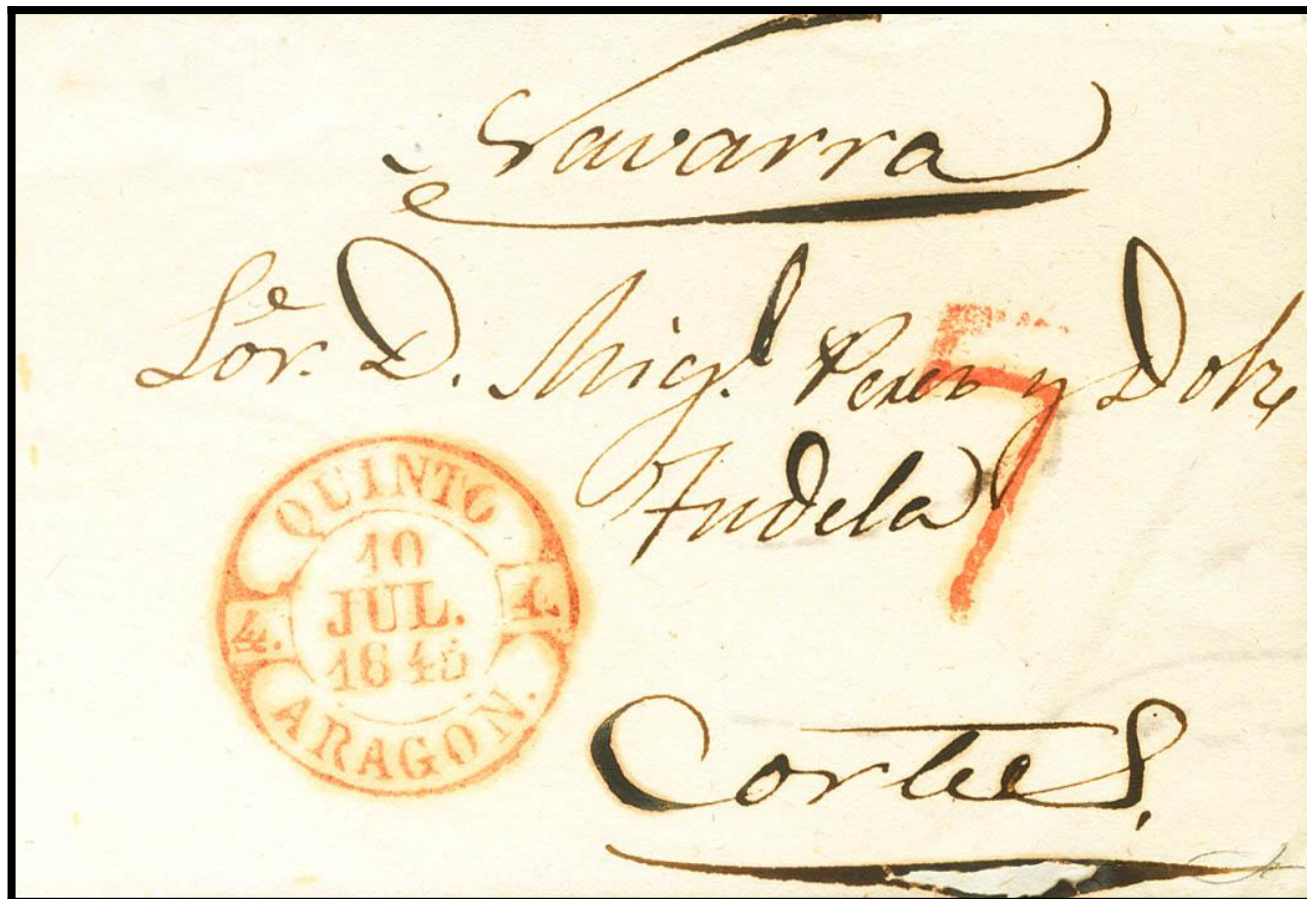 Navarra
Sor. D. Migl. Perez y
Tudela
7
QUINTO
10
JUL.
1845
ARAGON.
Cortes,